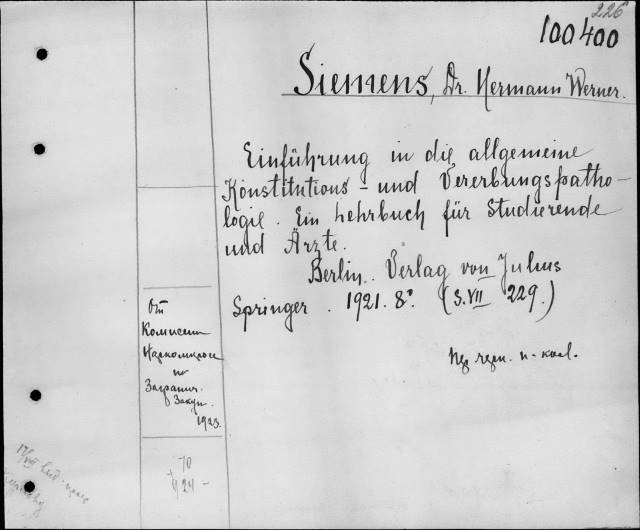 226
100400
Siemens, Dr. Hermann Werner.
Einführung in die allgemeine
Konstitutions- und Vererbungspatho-
logie. Ein Lehrbuch für Studierende
und Ärzte.
Berlin. Verlag von Julius
Springer. 1921. 8°. (S. VII 229.)
От
Комиссии
Наркомпроса
по
Загранич.
Закуп.
1923.
70
424-